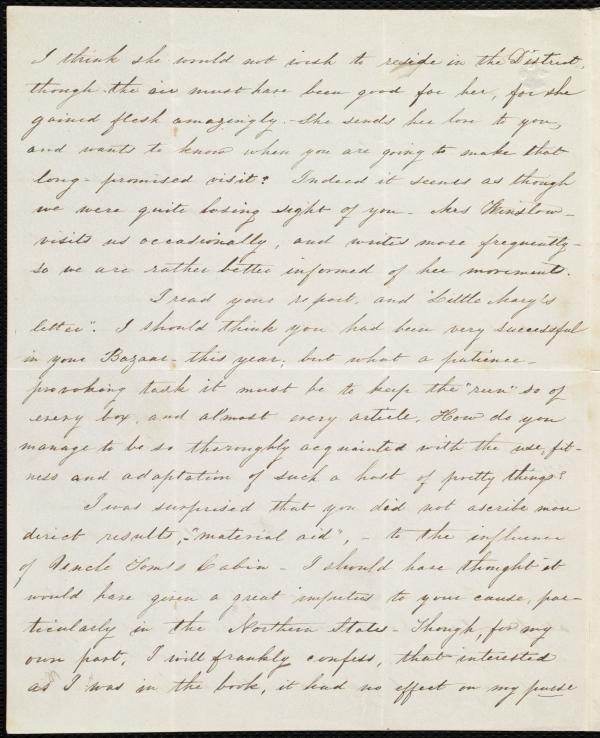 I think she would not wish to reside in the District,
though the air must have been good for her, for she
gained flesh amazingly. - She sends her love to you,
and wants to know when you are going to make that
long-promised visit? Indeed it seems as though
we were quite losing sight of you - Mrs Winslow -
visits us occasionally, and writes more frequently -
so we are rather better informed of her movement.
I read your report, and "Little Mary's
letter". I should think you had been very successful
in your Bazaar - this year; but what a patience-
provoking task it must be to keep the "run" so of
every box, and almost every article. How do you
manage to be so thoroughly acquainted with the use, fit-
ness and adaptation of such a host of pretty things?
I was surprised that you did not ascribe more
direct results, - "material aid", - to the influence
of Uncle Tom's Cabin - I should have thought it
would have given a great impetus to your cause, par-
ticularly in the Northern States - Though, for my
own part, I will frankly confess, that interested
as I was in the book, it had no effect on my purse